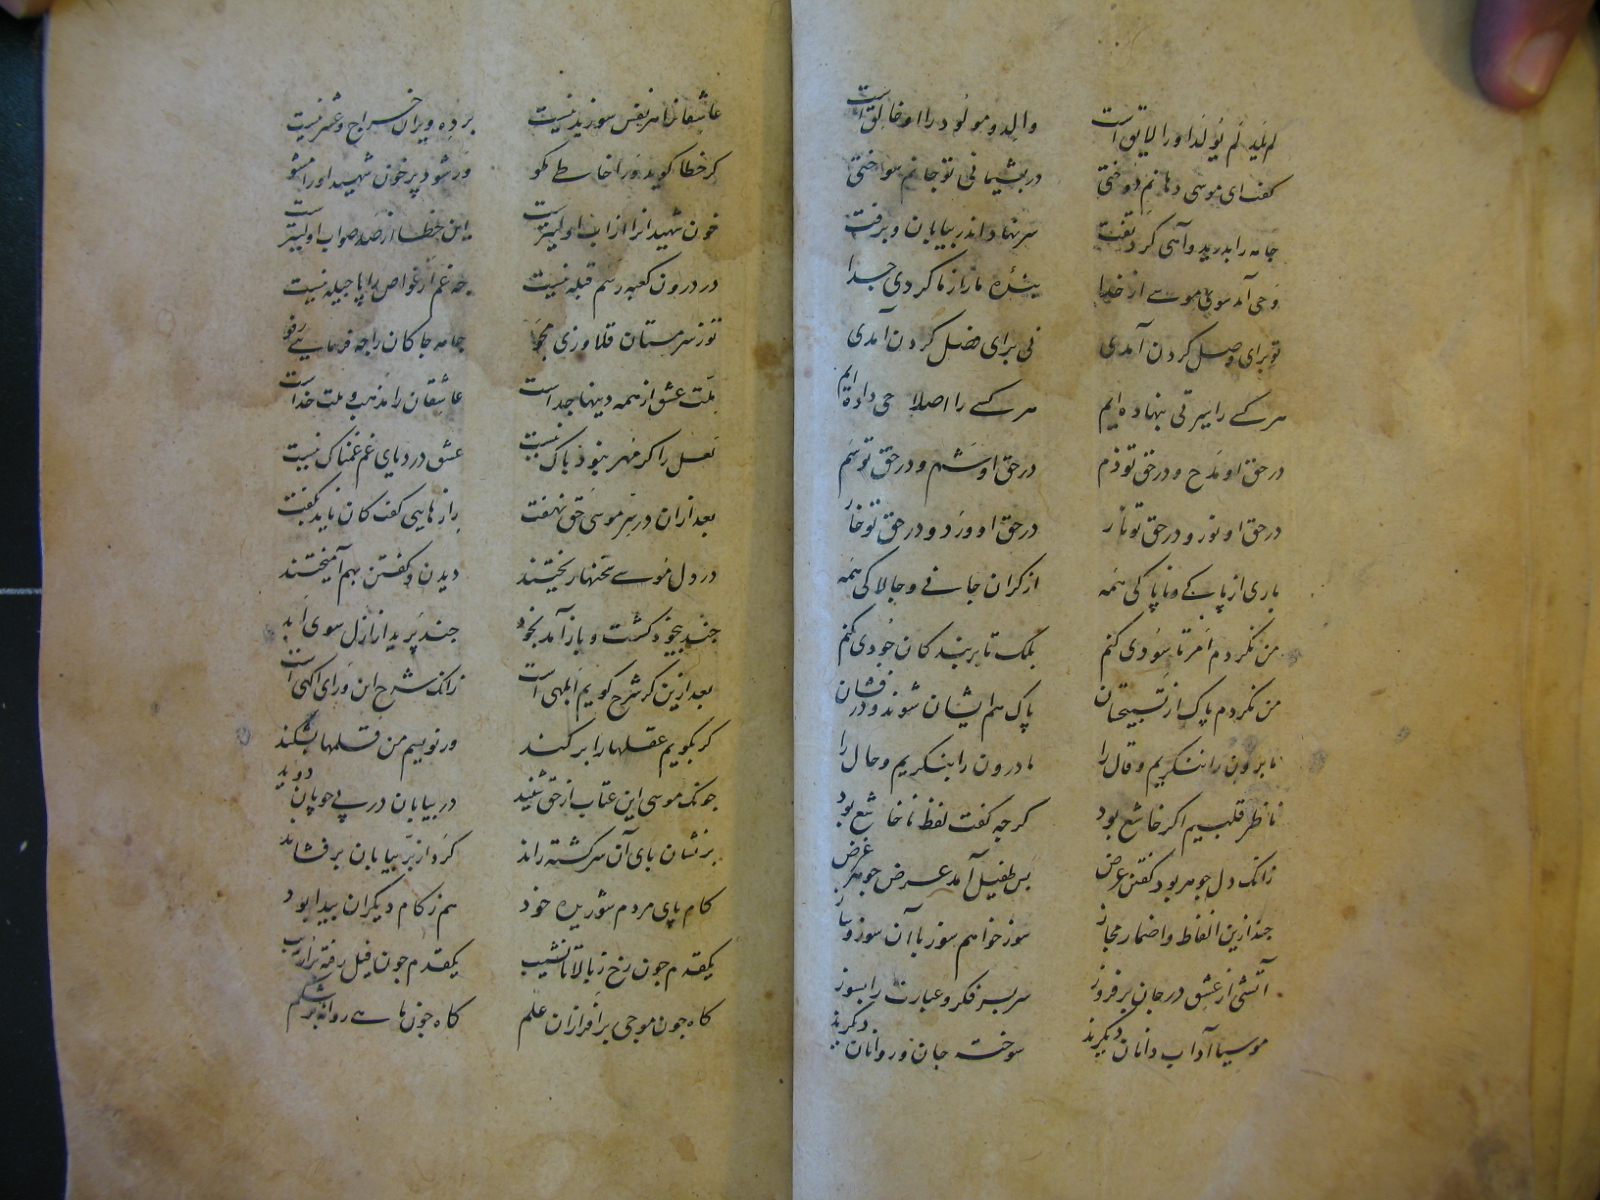 لم یلد لم یولد او را لایق است والد و مولود را او خالق است
کفت ای موسی دهانم دوختی در پشیمانی تو جانم سوختی
جامه را بدرید و آهی کرد تفت سر نهاد اندر بیابان و برفت
وحی آمد سوی موسے از خدا بندۀ ما را ز ما کردی جدا
تو برای وصل کردن آمدی نی برای فصل کردن آمدی
هر کسے را سیرتی بنهاده ایم هر کسے را اصلاحی داده ایم
در حق او مدح و در حق تو ذم در حق او شهد و در حق تو سم
در حق او نور و در حق تو نار در حق او ورد و در حق تو خار
باری از پاکے و ناپاکی همه از کران جانے و جالاکی همه
من نکردم امر تا سودی کنم بلک تا بر بندکان جودی کنم
من نکردم پاک از تسبیحشان پاک هم ایشان شوند و درفشان
ما برون را ننکریم و قال را ما درون را بنکریم و حال را
ناظر قلبیم اکر خاشع بود کرجه کفت لفظ ناخاشع بود
زانک دل جوهر بود کفتن عرض بس طفیل آمد عرض جوهر غرض
جند ازین الفاظ و اضمار مجاز سوز خواهم سوز با آن سوز و ساز
آتشی از عشق در جان بر فروز سر بسر فکر و عبارت را بسوز
موسیا آداب دانان دیکرند سوخته جان و روانان دیکرند
عاشقانرا هر نفس سوزیدنیست بر ده ویران خراج و عشر نیست
کر خطا کوید ورا خاطے مکو ور شود پر خون شهید او را مشو
خون شهیدانرا از آب اولیترست این خطا از صد صواب اولیترست
در درون کعبه رسم قبله نیست جه غم ار غواص را پاجیله نیست
تو ز سرمستان قلاوزی مجو جامه جاکان را جه فرمایے رفو
ملت عشق از همه دینها جداست عاشقان را مذهب و ملت خداست
لعل را کر مهر نبوذ باک نیست عشق در دریای غم غمناک نیست
بعد ازان در سر موسی حق نهفت رازهایی کفت کان ناید بکفت
در دل موسے سخنها ریختند دیدن و کفتن بهم آمیختند
جند بیخود کشت و باز آمد بخود جند پرید از ازل سوی ابد
بعد ازین کر شرح کویم ابلهی است زانک شرح این ورای آکهی است
کر بکویم عقلها را بر کند ور نویسم من قلمها بشکند
جونک موسی این عتاب از حق شنید در بیابان در پے جوپان دوید
بر نشان پای آن سرکشته راند کرد از پر بیابان بر فشاند
کام پای مردم شوریده خود هم ز کام دیکران پیدا بود
یکقدم جون رخ ز بالا تا نشیب یکقدم جون فیل رفته بر اریب
کاه جون موجی بر افرازان علم کاه جون ماهے روانه بر شکم